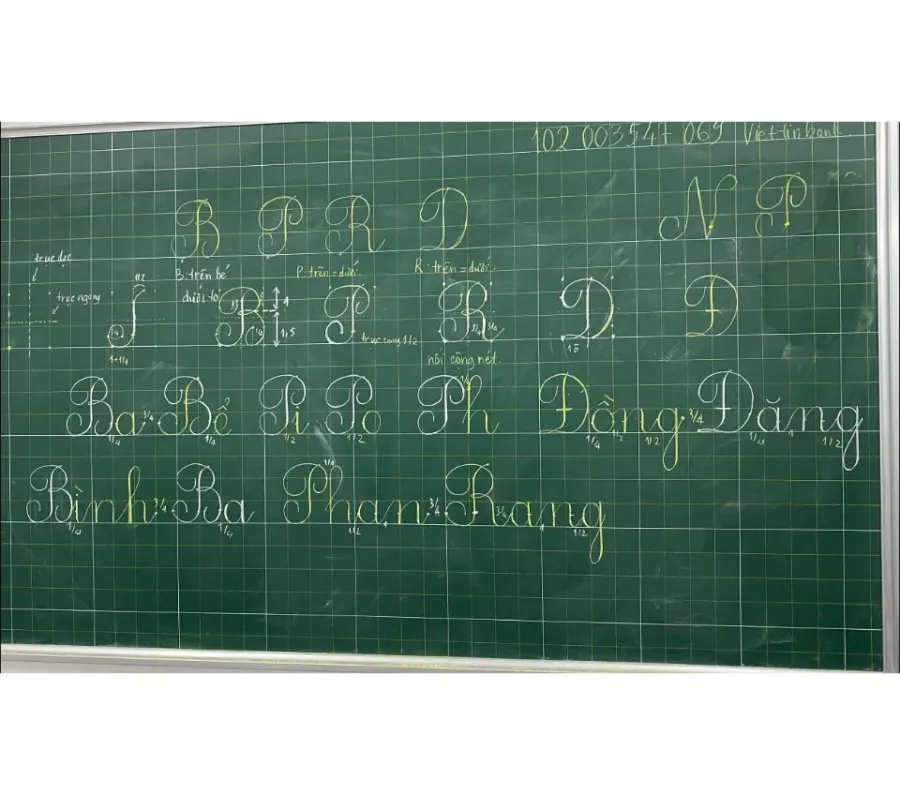 102 003547 069 Viettinbank
B P R D N P
trục dọc
trục ngang
1/2
B: trên bé
dưới to
P: trên = dưới
R: trên = dưới
3/4
1+1/4
B
1/4
1
1,5
P
trục cong 1/2
R
3/4 3/4
nối cộng nét
D
Đ
Ba 3/4 Bể Pi Po Ph Đồng 3/4 Đăng
1/4 1/4 1/2 1/2 1/4 1/2 1/2 1/4 1 1/2
Bình 3/4 Ba Phan 3/4 R 3/4 ang
1/4 1/4 1/2 1 1 1/2